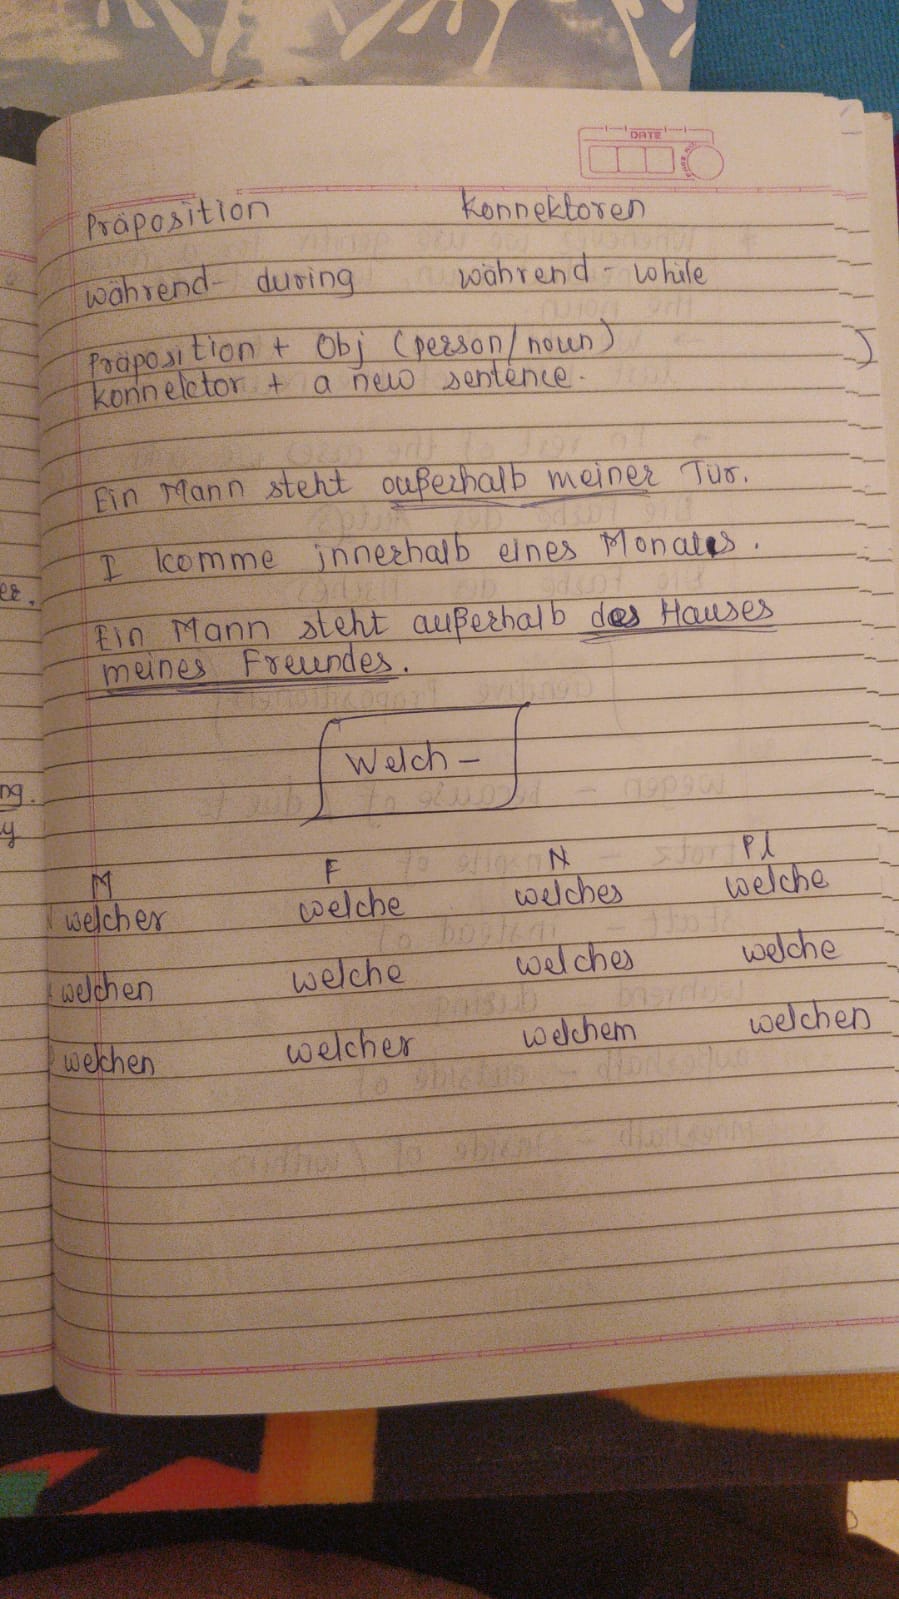 DATE
Präposition Konnektoren
während - during während - while
Präposition + Obj (person/noun)
Konnektor + a new sentence.
Ein Mann steht außerhalb meiner Tür.
I komme innerhalb eines Monats.
Ein Mann steht außerhalb des Hauses
meines Freundes.
Welch -
M F N Pl
welcher welche welches welche
welchen welche welches welche
welchen welcher welchem welchen
ng.
y